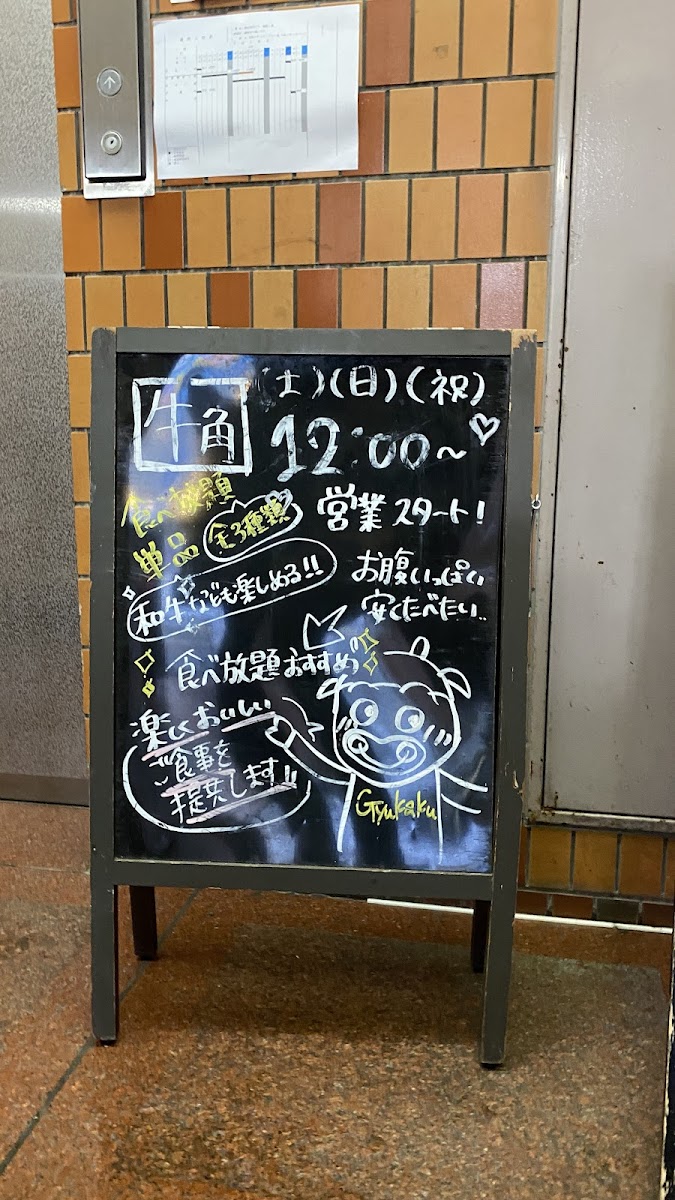 牛角
(土)(日)(祝)
12:00~♡
営業スタート!
食べ放題
単品
全3種類
和牛なども楽しめる!!
お腹いっぱい
安くたべたい..
食べ放題おすすめ
楽しくおいしい
ご食事を
提供します!!
Gyukaku